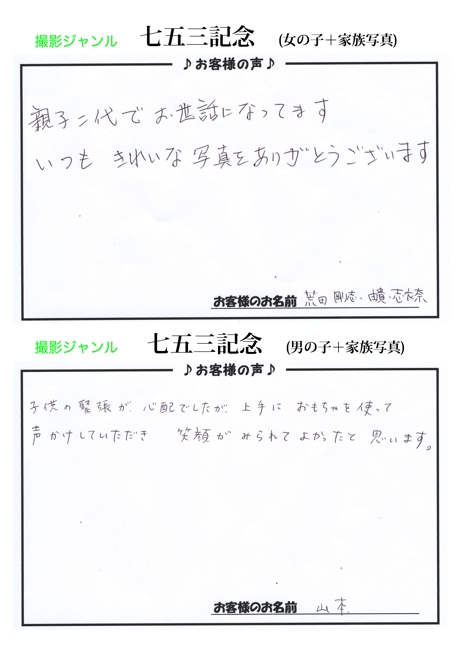 撮影ジャンル 七五三記念 (女の子＋家族写真)
♪お客様の声♪
親子二代でお世話になってます
いつも きれいな写真をありがとうございます
お客様のお名前 荒田 剛志・由貴・志衣奈
撮影ジャンル 七五三記念 (男の子＋家族写真)
♪お客様の声♪
子供の緊張が、心配でしたが、上手に おもちゃを使って
声かけしていただき 笑顔がみられてよかったと思います。
お客様のお名前 山本